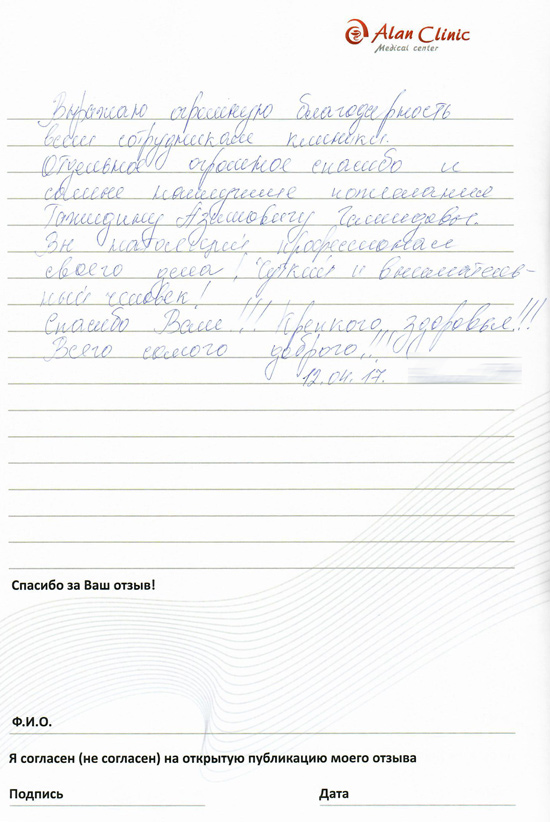 Alan Clinic
Medical center
Выражаю огромную благодарность
всем сотрудникам клиники.
Отдельное огромное спасибо и
самые наилучшие пожелания
Азимовичу
Вы настоящий профессионал
своего дела! Чуткий и вниматель-
ный человек!
Спасибо Вам!!! Крепкого здоровья!!!
Всего самого доброго!!!
12.04.17.
Спасибо за Ваш отзыв!
Ф.И.О.
Я согласен (не согласен) на открытую публикацию моего отзыва
Подпись Дата